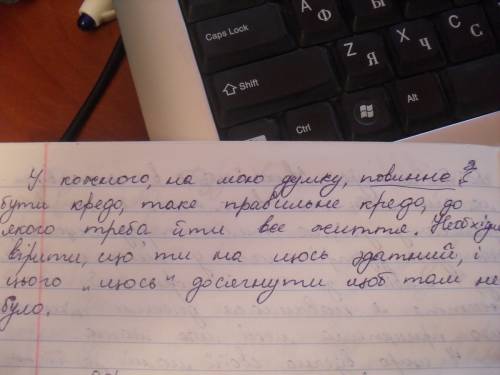 Caps Lock
A Ф
Ы
Shift
Z Я
X Ч
C С
Ctrl
Alt
У кожного, на мою думку, повинно
бути кредо, таке правильне кредо, до
якого треба йти все життя. Необхідно
вірити, що ти на щось здатний, і
цього „щось" досягнути щоб там не
було.